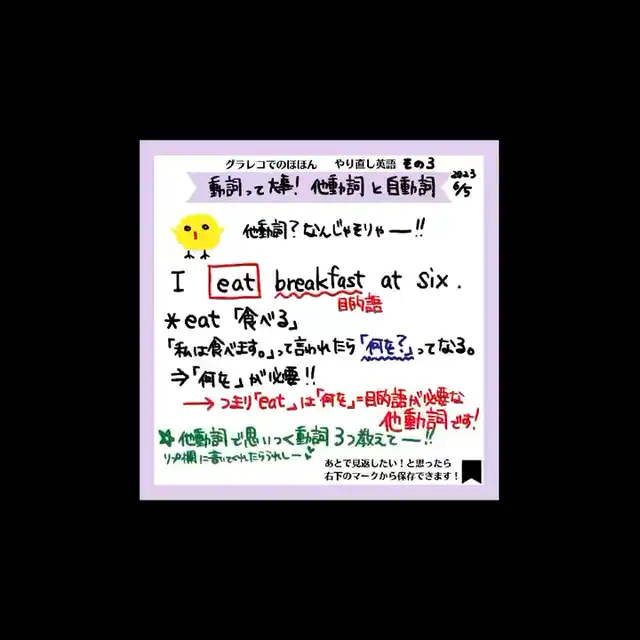 グラレコでのほほん やり直し英語 その3
2023 6/5
動詞って大事! 他動詞と自動詞
他動詞?なんじゃそりゃー!!
I eat breakfast at six.
目的語
*eat「食べる」
「私は食べます。」って言われたら「何を?」ってなる。
⇒「何を」が必要!!
→つまり「eat」は「何を」=目的語が必要な
他動詞です!
☆他動詞で思いつく動詞3つ教えてー!!
リプ欄に書いてくれたらうれしー
あとで見返したい!と思ったら
右下のマークから保存できます!